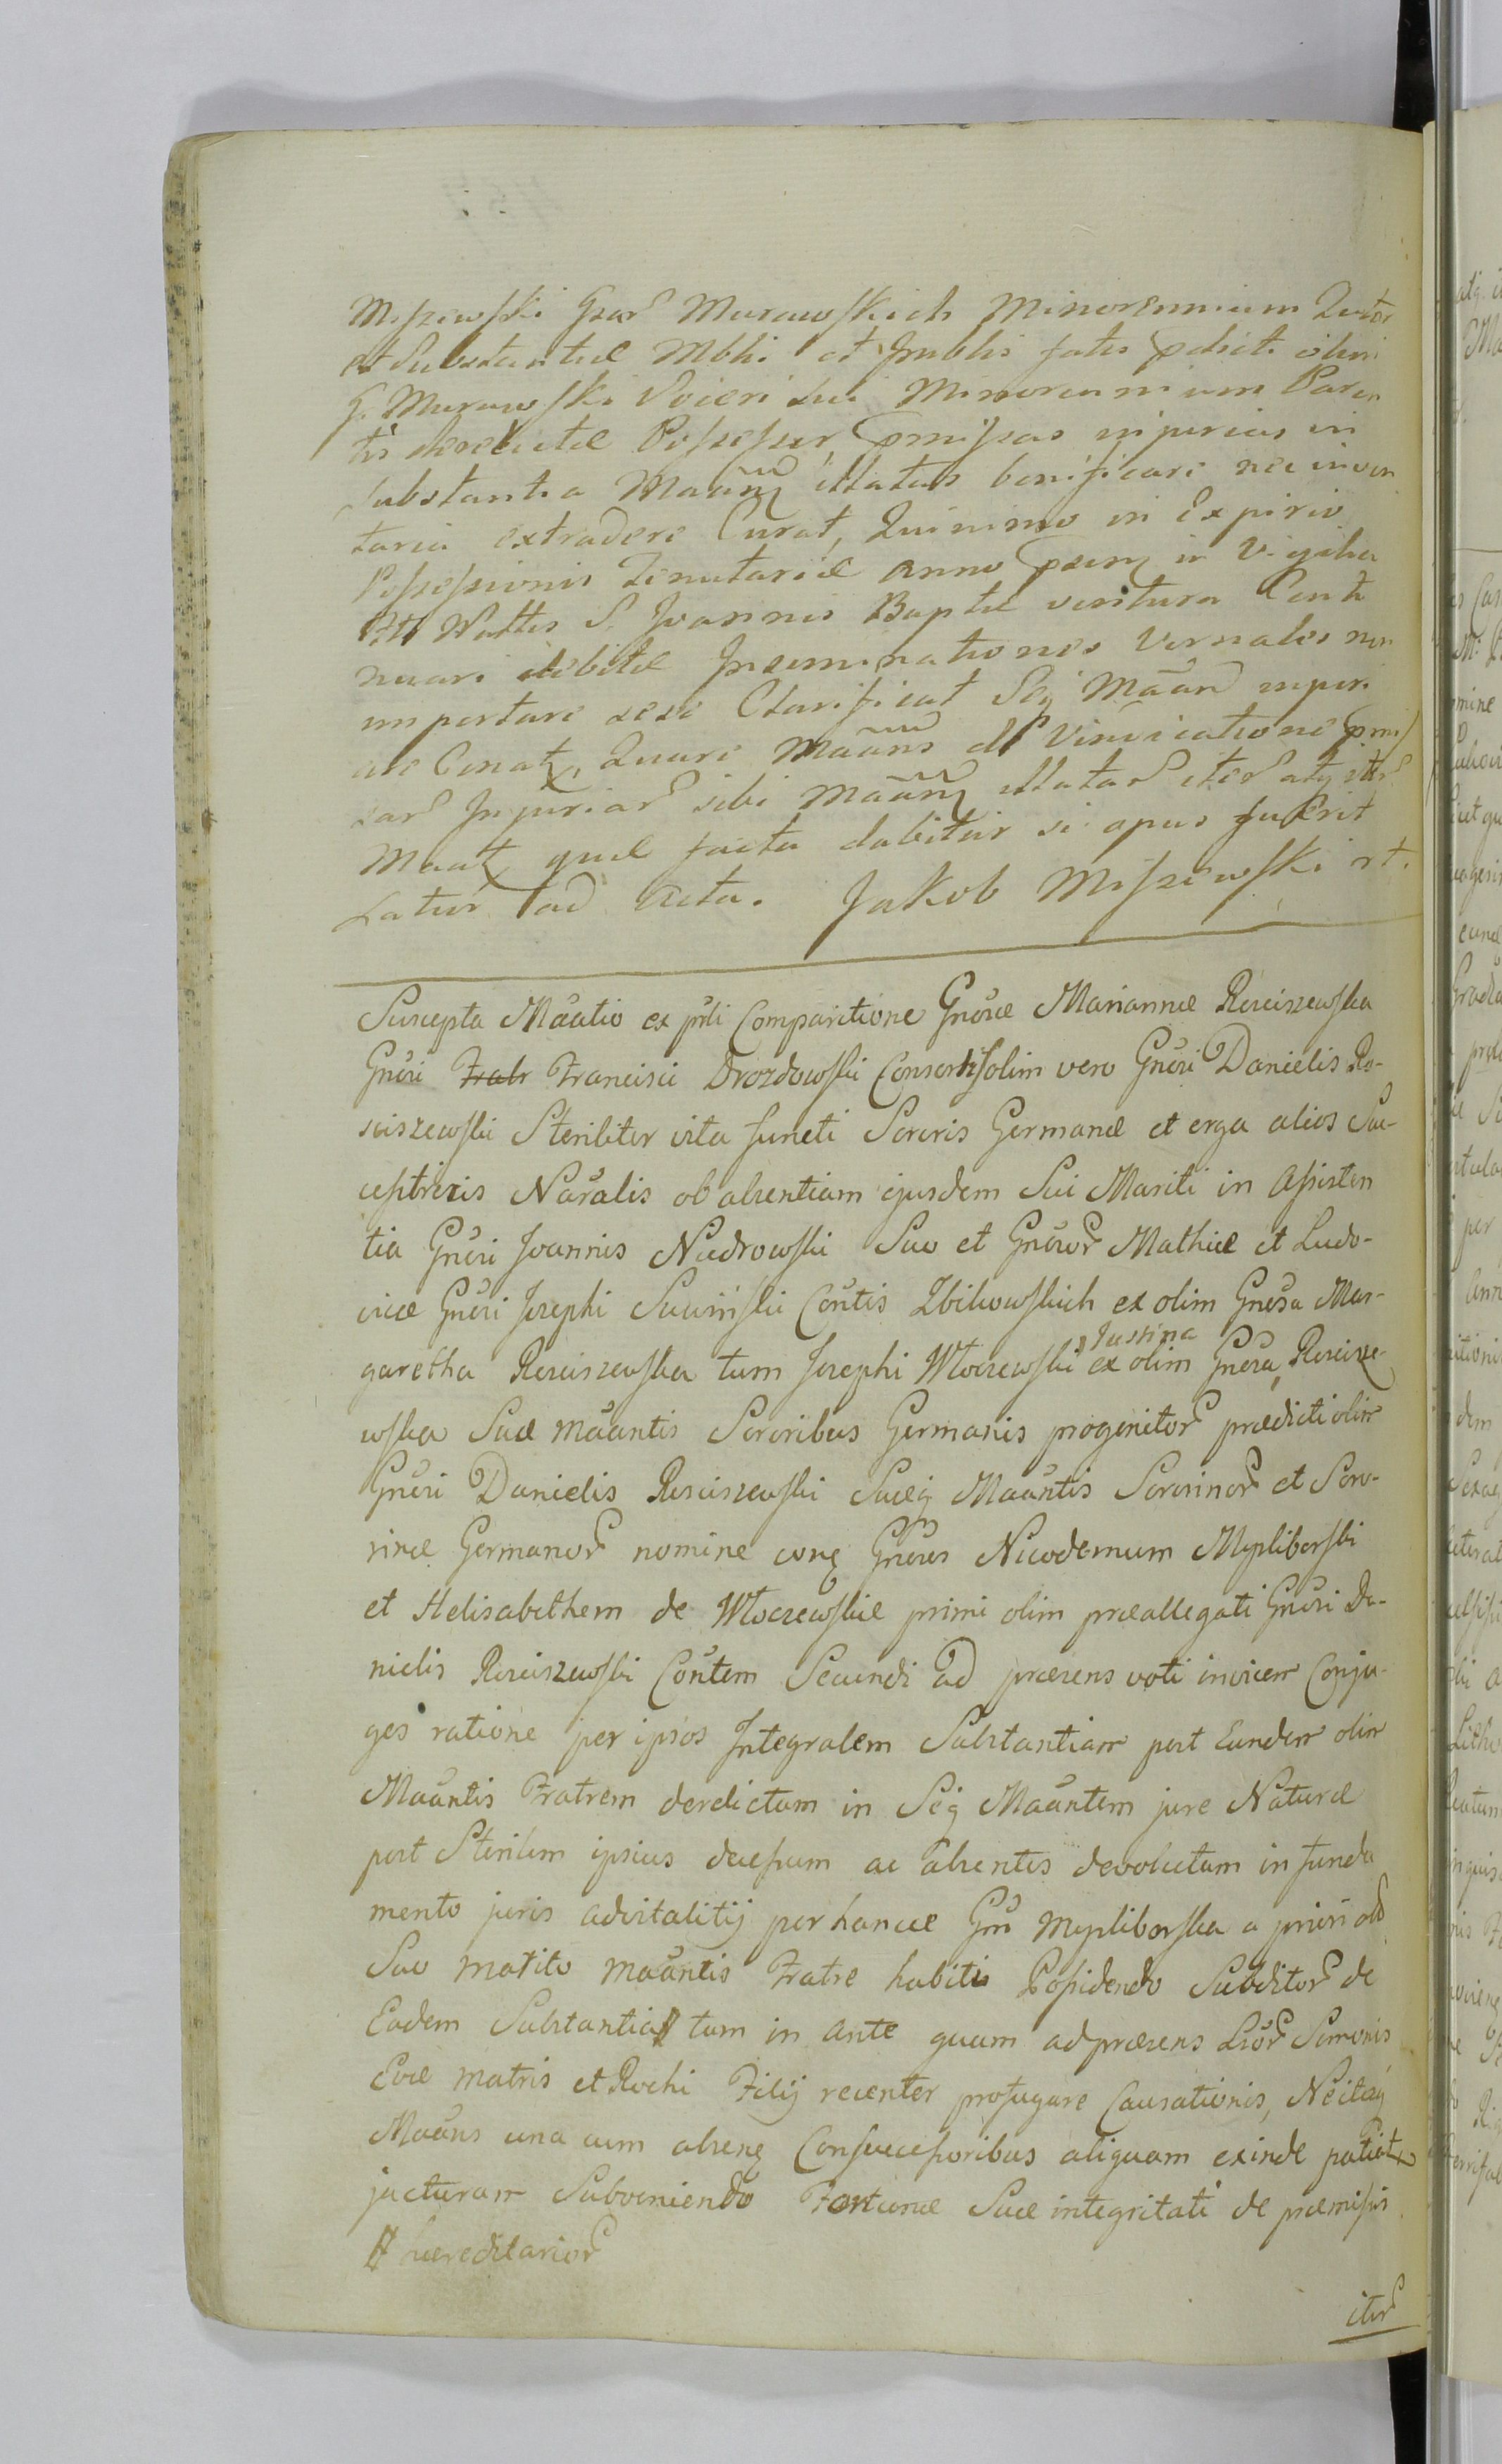 Miszewski Gnar Murawskich Minorennium Tutor
et Substantiæ Mblis et Imblis fatis pdicti olim
G. Murawski Viceri sui Minorennium Paren
tis derelictæ Possessor, pmissas injurias in
Substantia Maanq illatas bonificare nec inven
taria extradere Curat, Quinimo in Expirio
Possessionis Tenutariæ anno psenq in Vigilia
S. Joannis Baptæ ventura Conti
nuari debitæ Inseminationes Vernales non
importare sese Clarificat Seq Maan injuri
are Conat, Quare Maans de Vindicatione pmis
sar Injuriar sibi Maanq illatar iter atq iter
Maat, quæ facta dabitur si opus fuerit
Latur ad Acta. Jakob Miszewski mp.
Suscepta Maatio ex prli Comparitione Gnosæ Mariannæ Rosciszewska
Gnosi Fratr Francisci Drozdowski Consortis olim vero Gnosi Danielis Ro-
sciszewski Steriliter vita functi Sororis Germanæ et erga alios Suc-
ceptricis Naralis ob absentiam ejusdem Sui Mariti in Assisten
tia Gnosi Joannis Niedrowski Suo et Gnosor Mathiæ et Ludo-
vicæ Gnosi Josephi Suwinski Contis Zbikowskich ex olim Gnosa Mar-
garetha Rosciszewska tum Josephi Wloczewski ex olim Gnosa, Justina Roscisze-
wska Suæ Maantis Sororibus Germanis progenitor prædicti olim
Gnosi Danielis Rosciszewski Suæq Maantis Sororinor et Soro-
rinæ Germanor nomine conq Gnosos Nicodemum Mysliborski
et Helisabethem de Wloczewskie primi olim præallegati Gnosi Da-
nielis Rosciszewski Contem Secundi ad præsens voti invicem Conju-
ges ratione per ipsos Integralem Substantiam post Eundem olim
Maantis Fratrem derelictam in Seq Maantem jure Naturæ
post Sterilem ipsius decessum ac absentes devolutam in funda
mento juris advitalitij per hance Gm Mysliborska a priori olim
Suo marito Maantis Fratre habiti Possidendo Subditor de
Eadem Substantia # tum in ante quam ad præsens Lior Simonis
Evæ matris et Rochi Filij recenter profugare Causationis, Neitaq
Maans una cum absenq Consuccessoribus aliquam exinde patiat
jacturam Subveniendo Fortunæ Suæ integritati de præmissis
# hæreditarior
iter